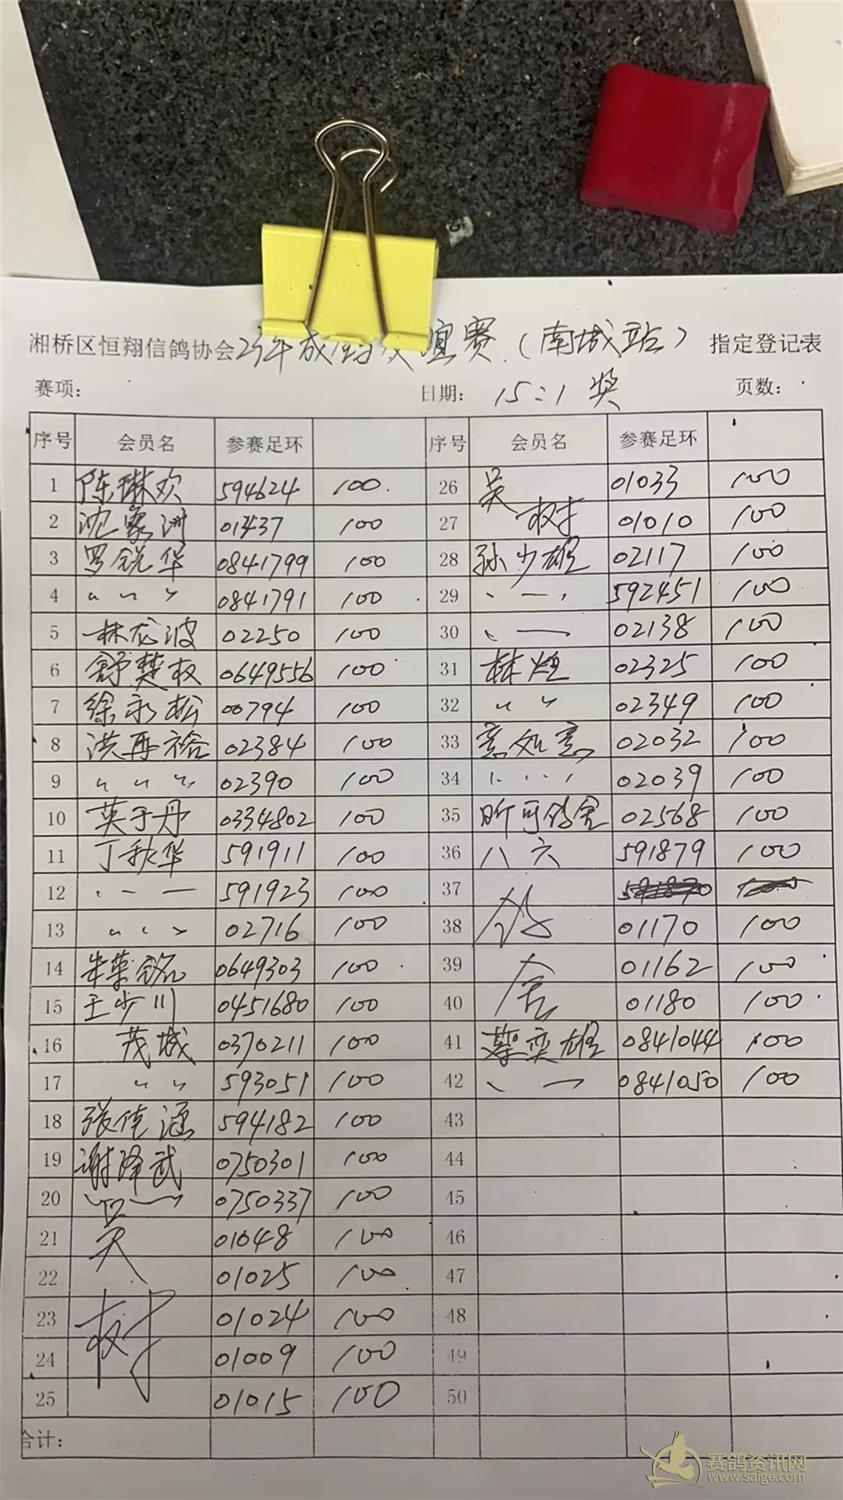 湘桥区恒翔信鸽协会 23年成鸽友谊赛(南城站) 指定登记表
赛项: 日期: 15:1奖 页数:
序号 会员名 参赛足环 序号 会员名 参赛足环
1 陈琳欢 594624 100 26 吴 01033 100
2 沈家洲 01437 100 27 树 01010 100
3 罗锐华 0841799 100 28 孙少雄 02117 100
4 〃 〃 〃 0841791 100 29 592451 100
5 林龙波 02250 100 30 02138 100
6 舒楚权 0649556 100 31 林煌 02325 100
7 徐永松 00794 100 32 〃 〃 02349 100
8 洪再裕 02384 100 33 意如意 02032 100
9 〃 〃 〃 02390 100 34 02039 100
10 英于丹 0334802 100 35 昕可鸽舍 02568 100
11 丁秋华 591911 100 36 八六 591879 100
12 591923 100 37
13 〃 〃 〃 02716 100 38 鸽 01170 100
14 朱荣铭 0649303 100 39 01162 100
15 王少川 0451680 100 40 舍 01180 100
16 茂城 0370211 100 41 蔡奕雄 0841044 100
17 〃 〃 593051 100 42 0841050 100
18 张佳涵 594182 100 43
19 谢泽武 0750301 100 44
20 0750337 100 45
21 吴 01048 100 46
22 01025 100 47
23 树 01024 100 48
24 01009 100 49
25 01015 100 50
合计:
赛鸽资讯网
www.saige.com